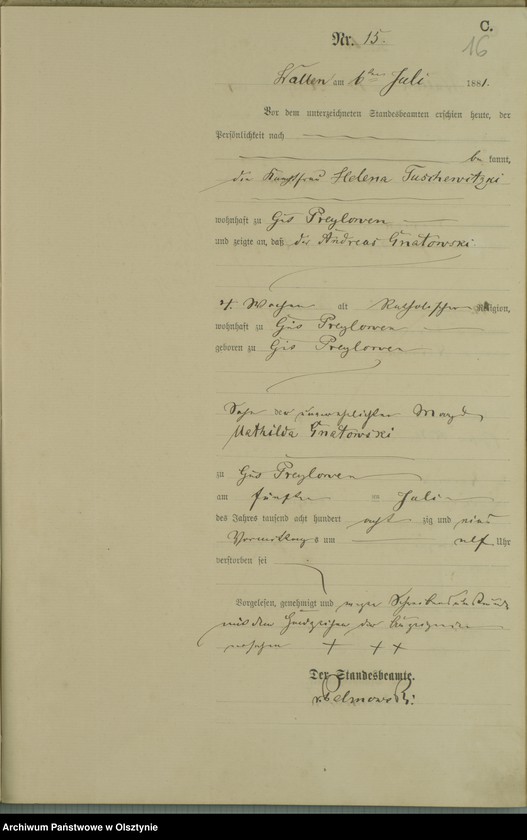 C.
16
Nr. 15.
am 6ten Juli 1881.
Vor dem unterzeichneten Standesbeamten erschien heute, der
Persönlichkeit nach
be kannt,
die Helena Tuschewitzki
wohnhaft zu Gut Preylowen
und zeigte an, daß der Andreas Gnatowski
Wochen alt Katholischer Religion,
wohnhaft zu Gut Preylowen
geboren zu Gut Preylowen
Sohn der unverehelichten Magd
Mathilda Gnatowski
zu Gut Preylowen
am fünften Juli
des Jahres tausend acht hundert acht zig und eins
Vormittags um elf Uhr
verstorben sei
Vorgelesen, genehmigt und wegen
mit dem Handzeichen der
versehen + + +
Der Standesbeamte.
Archiwum Państwowe w Olsztynie